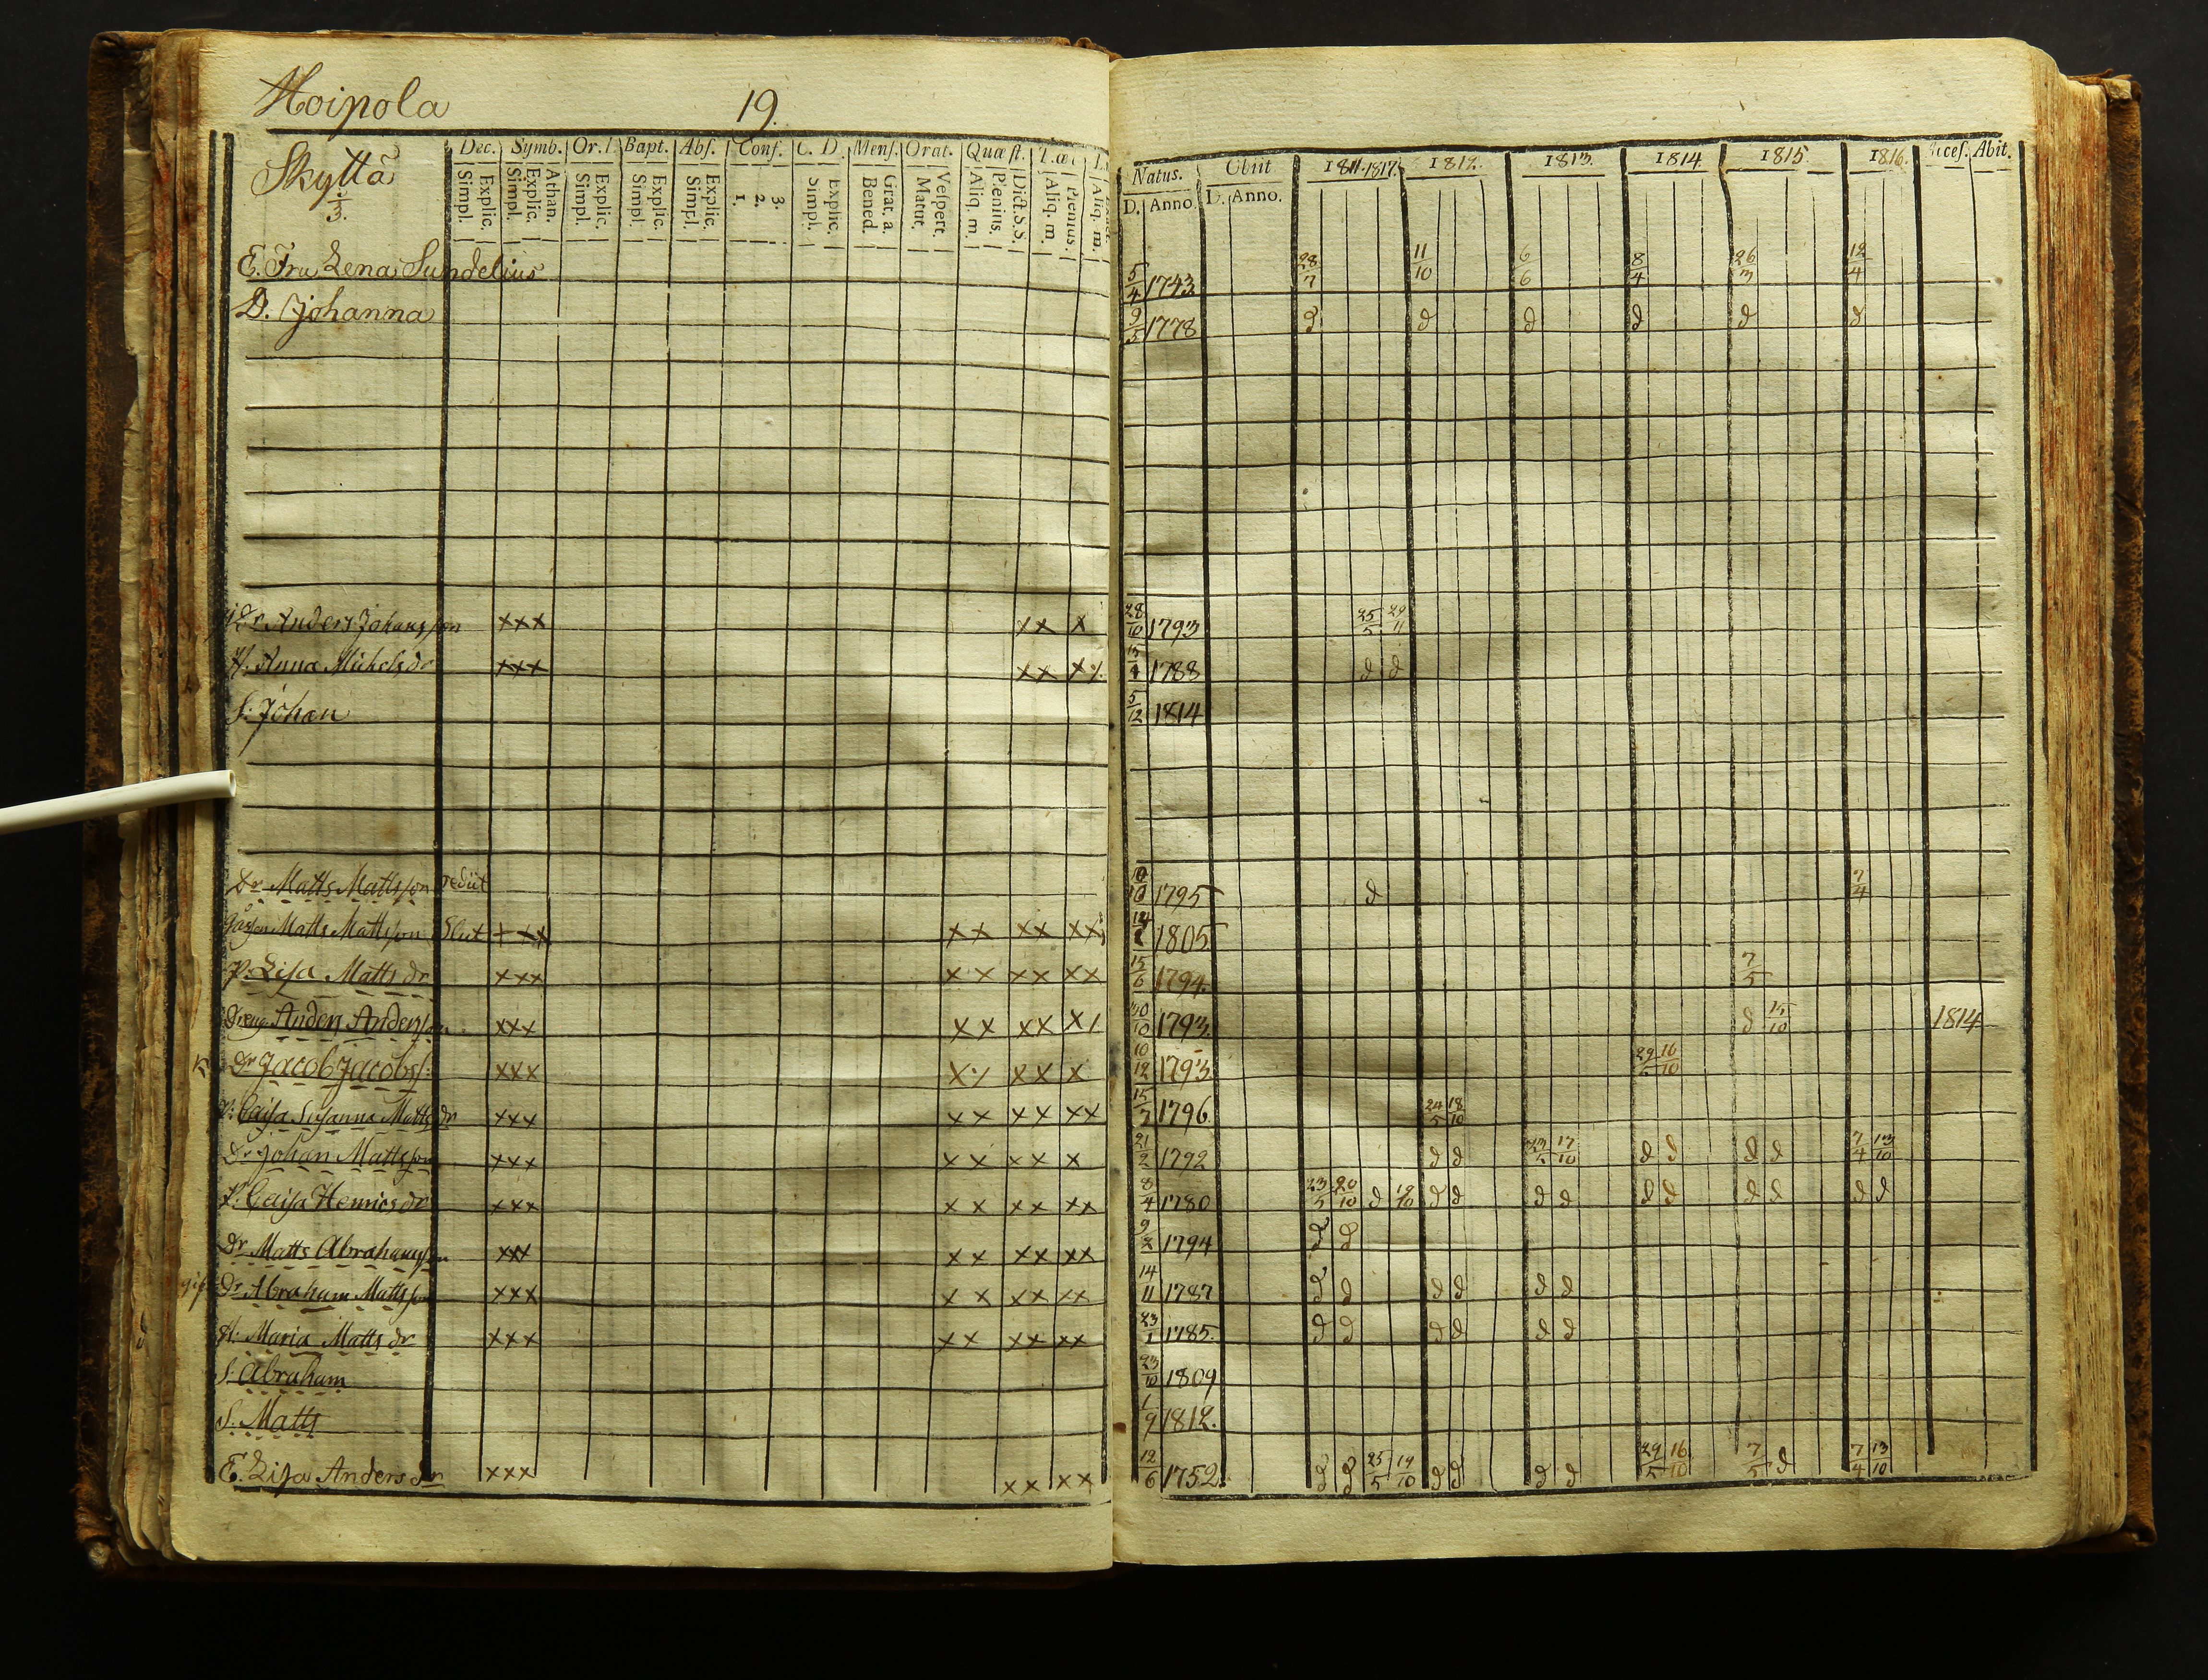 Moipola 19.
Skyttä
1/3.
Dec. Symb. Or. Bapt. Abs. Conf. C. D. Mens. Orat. Quæst.
Explic. Simpl. Athan. Explic. Simpl. Explic. Simpl. Explic. Simpl. Explic. Simpl. 3. 2. 1. Explic. Simpl. Grat. a. Bened. Vespert. Matut. Plenius. Aliq. m. Dict. S. S. Plenius. Aliq. m. Aliq. m.
Natus. Obiit 1811. 1817. 1812. 1813. 1814 1815 1816. Acces. Abit.
D. Anno. D. Anno.
E. Fru Lena Sundelius 5/4 1743 28/7 11/10 6/6 8/4 26/3 12/4
D. Johanna 9/5 1778 d d d d d d
Dr Anders Johansson xxx xx x 28/10 1793 25/5 29/11
H. Anna Michelsdr xxx xx xx 1788 d d
S. Johan 5/12 1814
Dr Matts Mattsson rediit 1795 d 7/4
Matts Mattsson xxx xx xx xx 1805
P. Lisa Mattsdr xxx xx xx xx 15/6 1794. 7/5
Dreng Anders Andersson xxx xx xx x/ 30/10 1793 d 15/10 1814
Dr Jacob Jacobss. xxx xx xx x 10/12 1793 29/5 16/10
P. Caisa Susanna Mattsdr xxx xx xx xx 15/7 1796. 24/5 18/10
Dr Johan Mattsson xxx xx xx x 21/2 1792 d d 23/5 17/10 d d d d 7/4 13/10
P. Caisa Henricsdr xxx xx xx xx 8/4 1780 23/5 20/10 d 19/10 d d d d d d d d d d
Dr Matts Abrahamsson xxx xx xx xx 1794 d d
gift Dr Abraham Mattsson xxx xx xx xx 14/11 1787 d d d d d d
H. Maria Mattsdr xxx xx xx xx 23/1 1785. d d d d d d
S. Abraham 23/10 1809
S. Matts 1/9 1812.
E. Lisa Andersdr xxx xx xx 12/6 1752. d d 25/5 19/10 d d d d 29/5 16/10 7/5 d 7/4 13/10